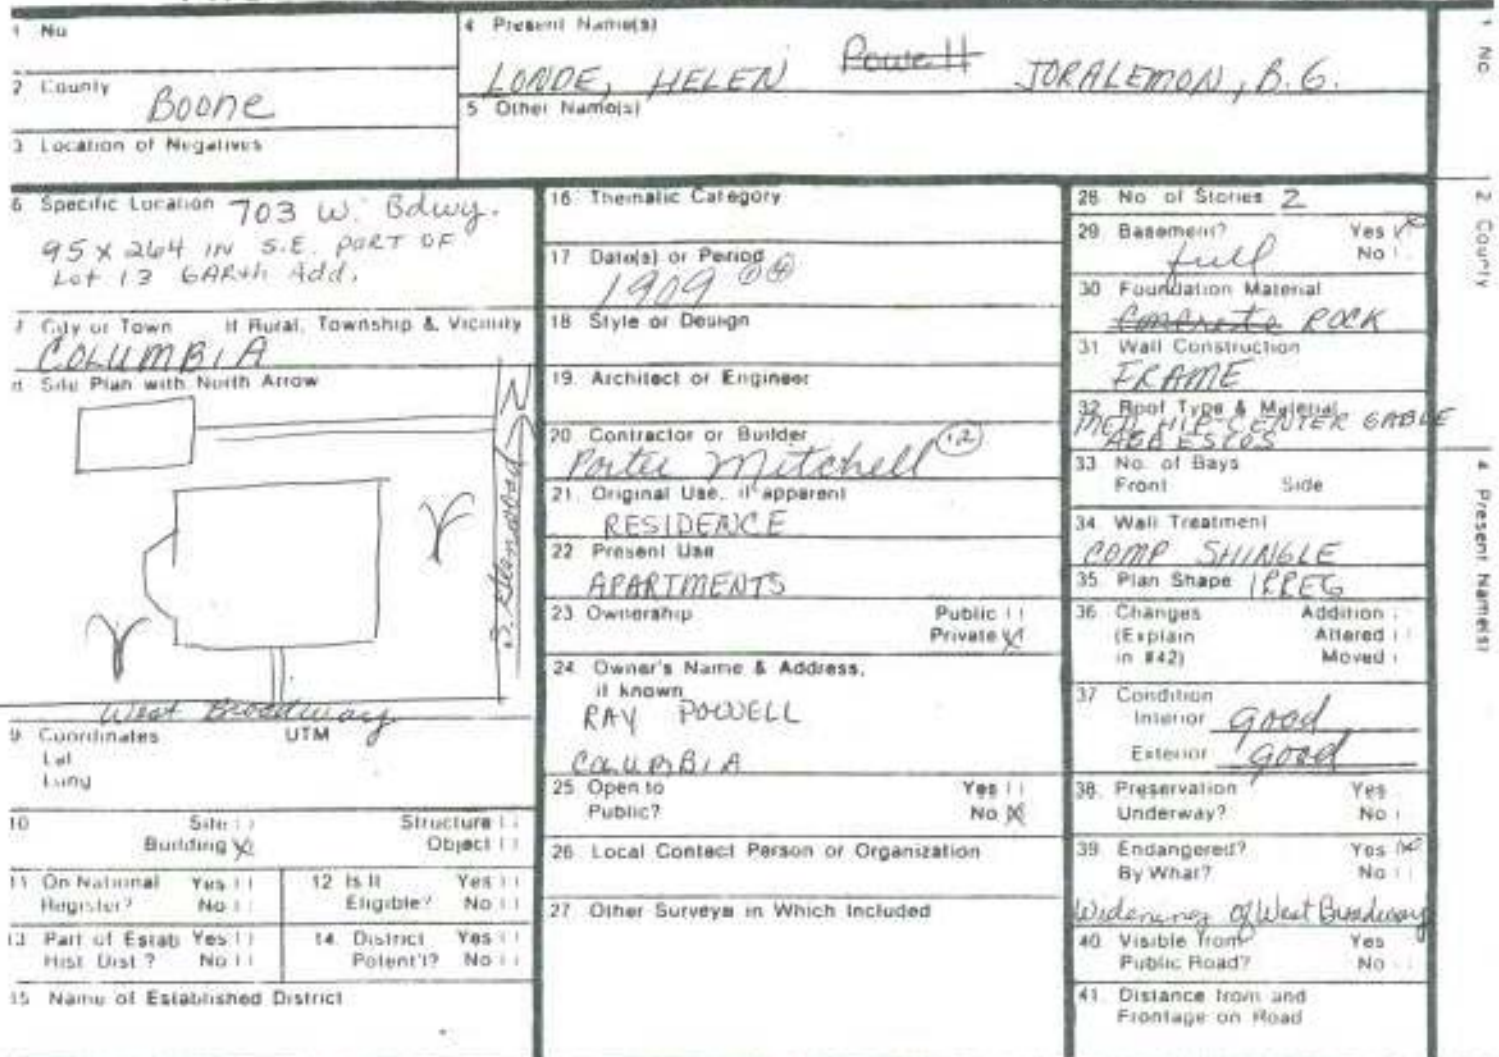 1 No
4 Present Name(s)
LONDE, HELEN Powell JORALEMON, B.G.
2 County
Boone
5 Other Name(s)
3 Location of Negatives
6 Specific Location 703 W. Bdwy.
95 x 264 IN S.E. PART OF
Lot 13 GARth Add.
7 City or Town If Rural, Township & Vicinity
COLUMBIA
8 Site Plan with North Arrow
N
Glenwood
West Broadway
9 Coordinates UTM
Lat
Long
10 Site Structure
Building X Object
11 On National Yes
Register? No
12 Is It Yes
Eligible? No
13 Part of Estab Yes
Hist. Dist.? No
14. District Yes
Potent'l? No
15 Name of Established District
16. Thematic Category
17 Date(s) or Period
1909
18 Style or Design
19. Architect or Engineer
20 Contractor or Builder
Porter Mitchell
21. Original Use, if apparent
RESIDENCE
22 Present Use
APARTMENTS
23 Ownership Public
Private X
24. Owner's Name & Address,
if known
RAY POWELL
COLUMBIA
25 Open to Yes
Public? No X
26. Local Contact Person or Organization
27. Other Surveys in Which Included
28 No of Stories 2
29 Basement? Yes
full No
30 Foundation Material
Concrete ROCK
31 Wall Construction
FRAME
32 Roof Type & Material
MED HIP-CENTER GABLE
ABBESTOS
33 No. of Bays
Front Side
34. Wall Treatment
COMP SHINGLE
35. Plan Shape IRREG
36 Changes Addition
(Explain Altered
in #42) Moved
37 Condition
Interior good
Exterior good
38. Preservation Yes
Underway? No
39. Endangered? Yes X
By What? No
Widening of West Broadway
40. Visible from Yes
Public Road? No
41. Distance from and
Frontage on Road
1 No
2 County
4 Present Name(s)